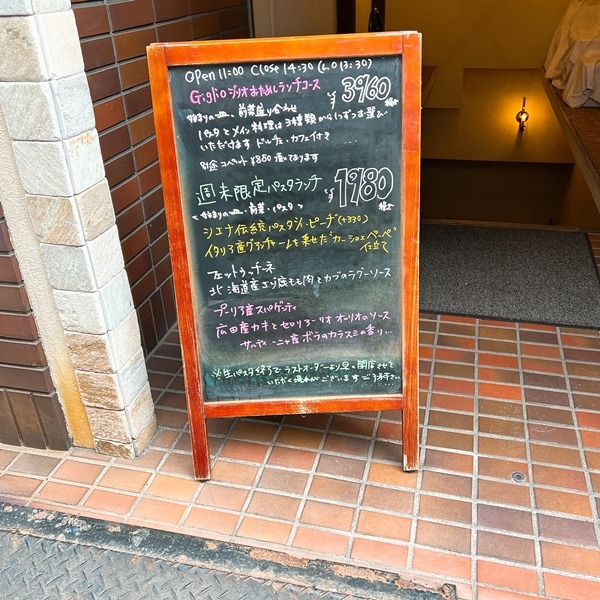 OPEN 11:00 Close 14:30 (L.O 13:30)
Giglio ジリオおためしランチコース ¥3960 税込
始まりの一皿、前菜盛り合わせ
パスタとメイン料理は3種類から1つずつお選び
いただけます ドルチェ・カフェ付き
別途コペルト ¥880
週末限定パスタランチ ¥1980 税込
<始まりの一皿・前菜・パスタ>
シエナ伝統パスタ "ピーチ" (+330)
イタリア産グアンチャーレを乗せた"カーショエペーペ"
仕立て
フェットゥッチーネ
北海道産エゾ鹿モモ肉とカブのラグーソース
プーリア産スパゲッティ
広田産カキとセロリ アーリオオーリオのソース
サルディーニャ産ボラのカラスミの香り
※生パスタ終了でラストオーダーより早く閉店させて
いただく場合がございます ご了承下さい